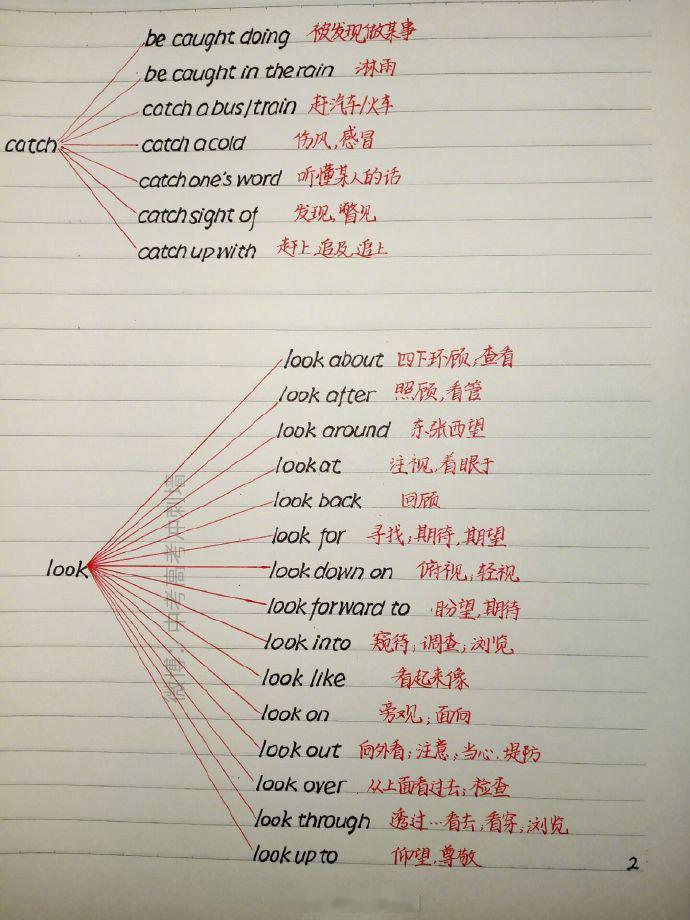 catch
be caught doing 被发现做某事
be caught in the rain 淋雨
catch a bus/train 赶汽车/火车
catch a cold 伤风,感冒
catch one's word 听懂某人的话
catch sight of 发现,瞥见
catch up with 赶上,追及,追上
look
look about 四下环顾;查看
look after 照顾,看管
look around 东张西望
look at 注视,着眼于
look back 回顾
look for 寻找;期待,期望
look down on 俯视;轻视
look forward to 盼望,期待
look into 窥待;调查;浏览
look like 看起来像
look on 旁观;面向
look out 向外看;注意;当心.堤防
look over 从上面看过去;检查
look through 透过…看去;看穿;浏览
look up to 仰望,尊敬
微博:中考高考冲刺墙
2